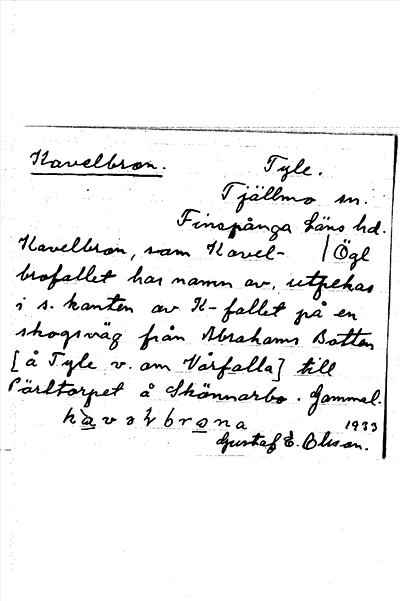 Kavelbron. Tyle.
Tjällmo sn.
Finspånga Läns hd.
Kavelbron, som Kavel- | Ögl
brofallet har namn av, utpekas
i s. kanten av K-fallet på en
skogsväg från Abrahams Botten
[å Tyle v. om Vårfalla] till
Pärltorpet å Skönnarbo. Gammal.
1933
Gustaf E. Olsson.